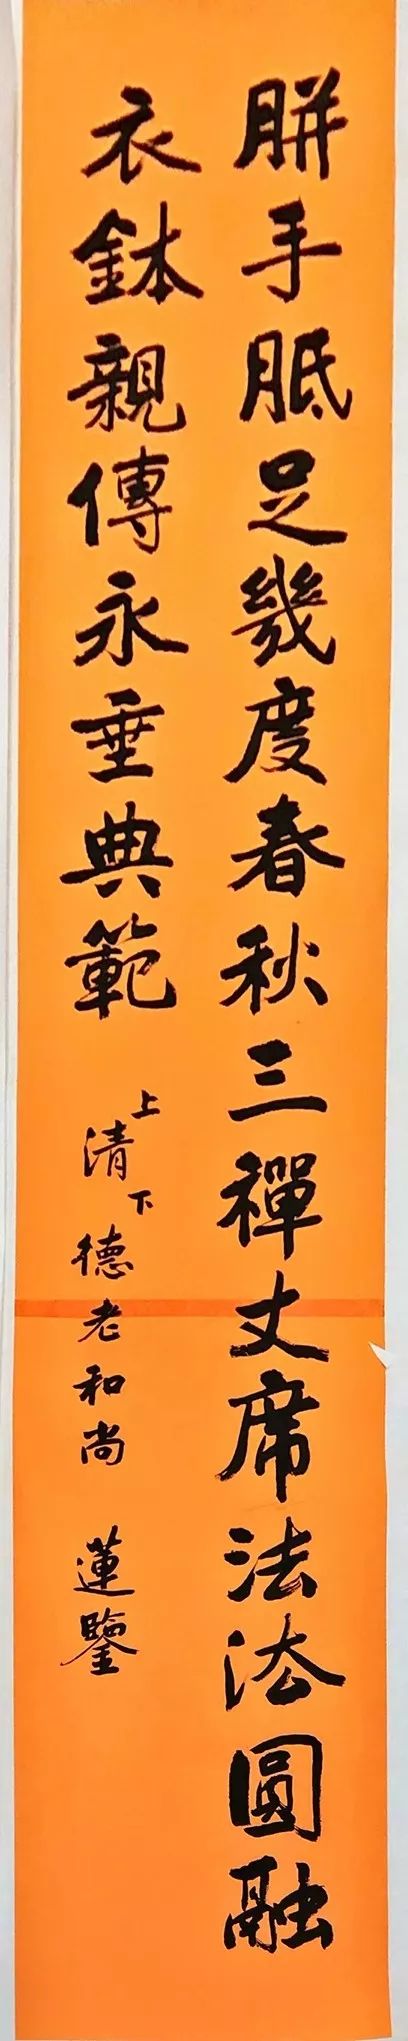 胼手胝足幾度春秋三禪丈席法法圓融
衣鉢親傳永垂典範
上清下德老和尚 蓮鑒